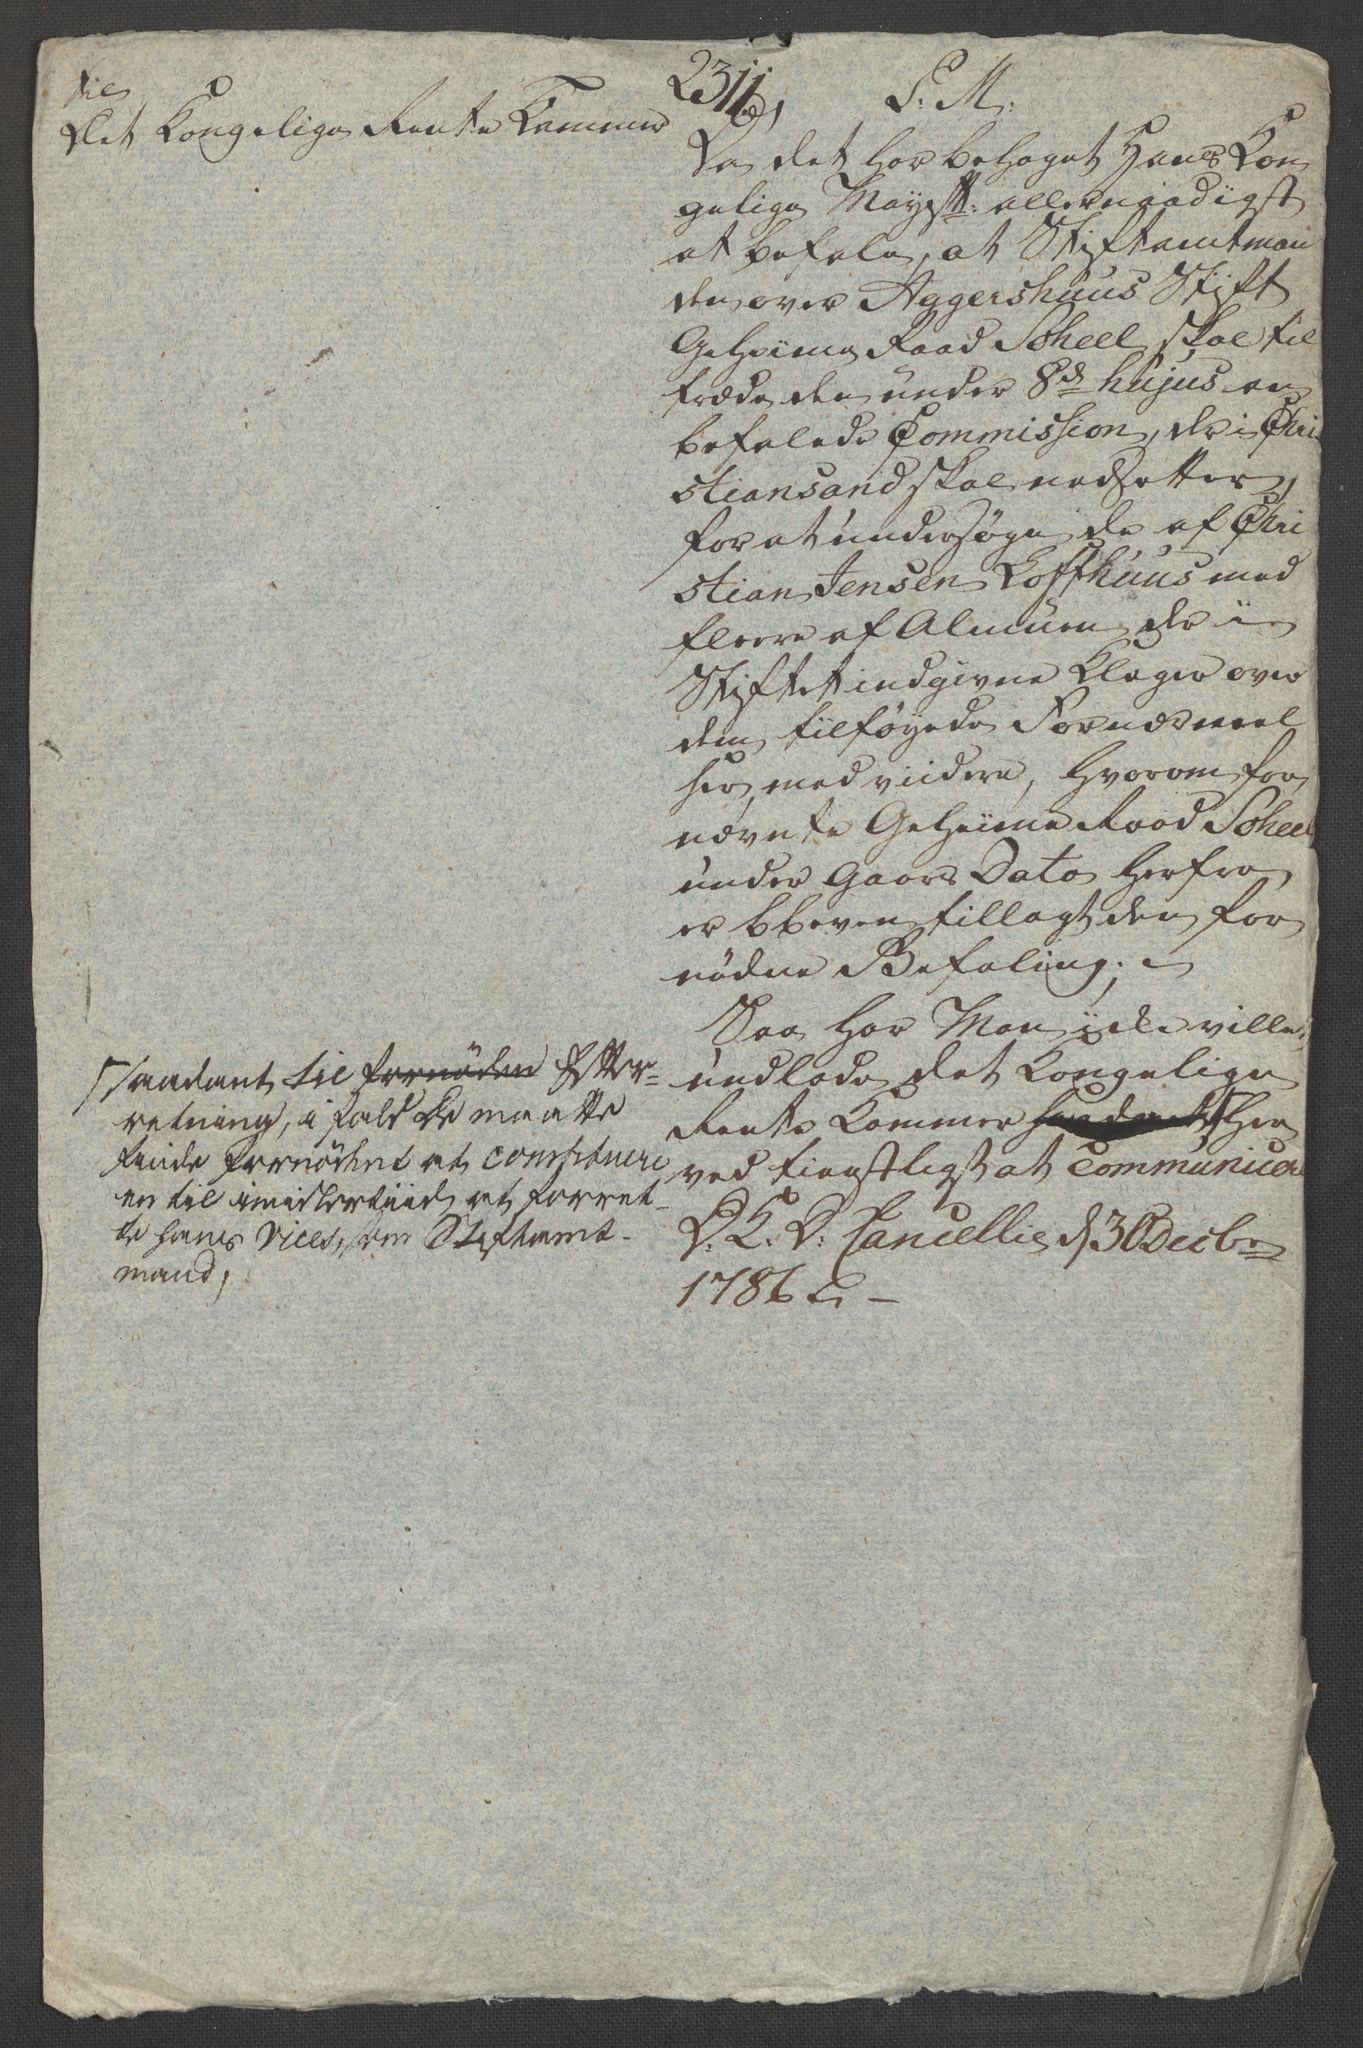 Til
Det Kongelige Rente Kammer
2311
P. M.
Da det har behaget Hans Kon
gelige Mayestt: allernaadigst
at befale, at Stiftamtman
den over Aggershuus Stift
Geheime Raad Scheel skal til
træde den under 8de hujus an
befalede Commission, der i Chri
stiansand skal nedsættes,
for at undersøge de af Chri
stian Jensen Lofthuus med
fleere af Almuen der i
Stiftet indgivne Klager over
dem tilføyede Fornærmel
ser, med viidere, hvorom for
nævnte Geheime Raad Scheel
under Gaars Dato herfra
er bleven tillagt den for
nødne Befaling;
Saa har Man ikke villet
undlade det Kongelige
Rente Kammer her
ved tienstligst at communicere
D. K. D: Cancellie d 30 Decbr
1786
Saadant til fornøden Efter-
retning, i fald De maatte
finde fornødent at constituere
en til imidlertiid at forret-
te hans Vices, som Stiftamt-
mand,